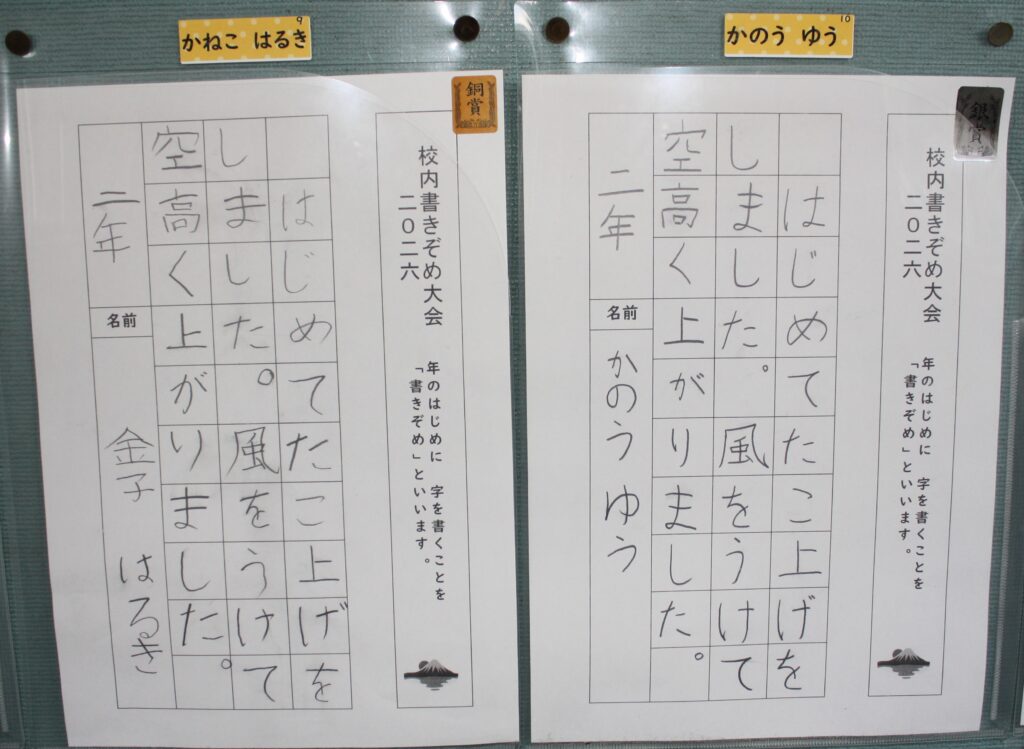 9
かねこ はるき
銅賞
校内書きぞめ大会
二〇二六
年のはじめに 字を書くことを
「書きぞめ」といいます。
はじめてたこ上げを
しました。風をうけて
空高く上がりました。
二年
名前
金子 はるき
10
かのう ゆう
銀賞
校内書きぞめ大会
二〇二六
年のはじめに 字を書くことを
「書きぞめ」といいます。
はじめてたこ上げを
しました。風をうけて
空高く上がりました。
二年
名前
かのう ゆう